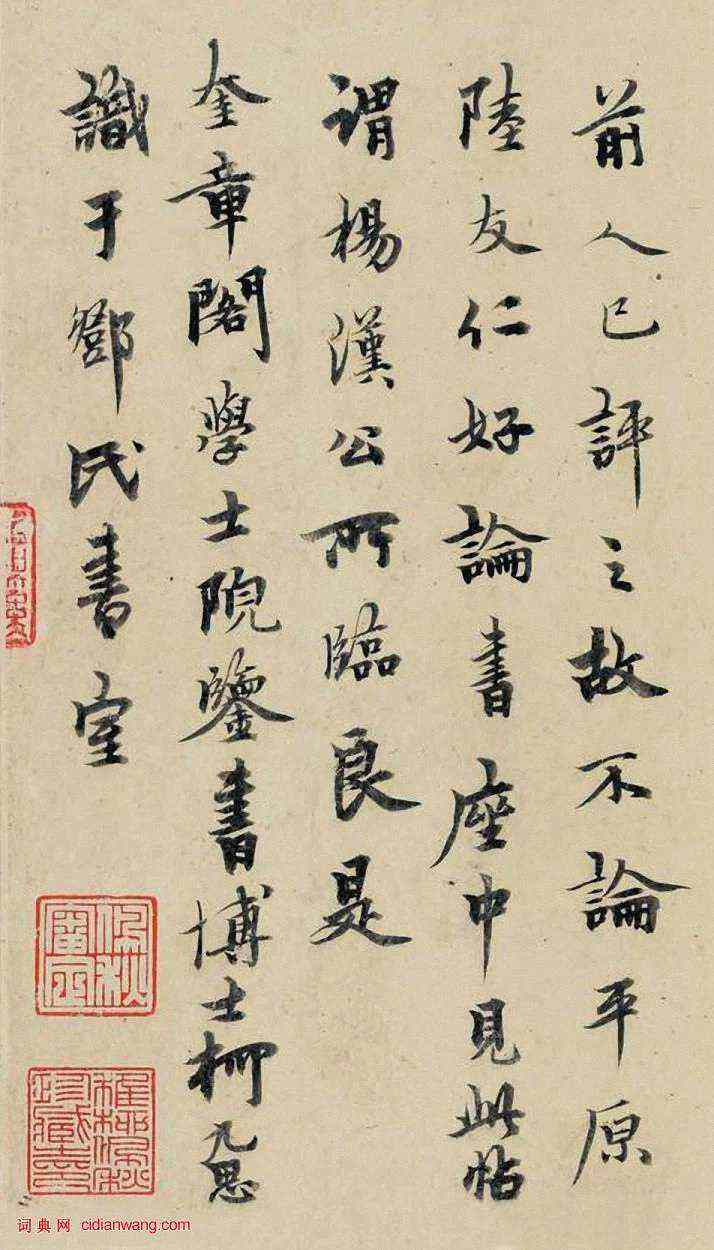 前人已評之故不論平原
陸友仁好論書座中見此帖
謂楊漢公所臨良是
奎章閣學士院鑒書博士柯九思
識于鄧氏書室
詞典网 cidianwang.com